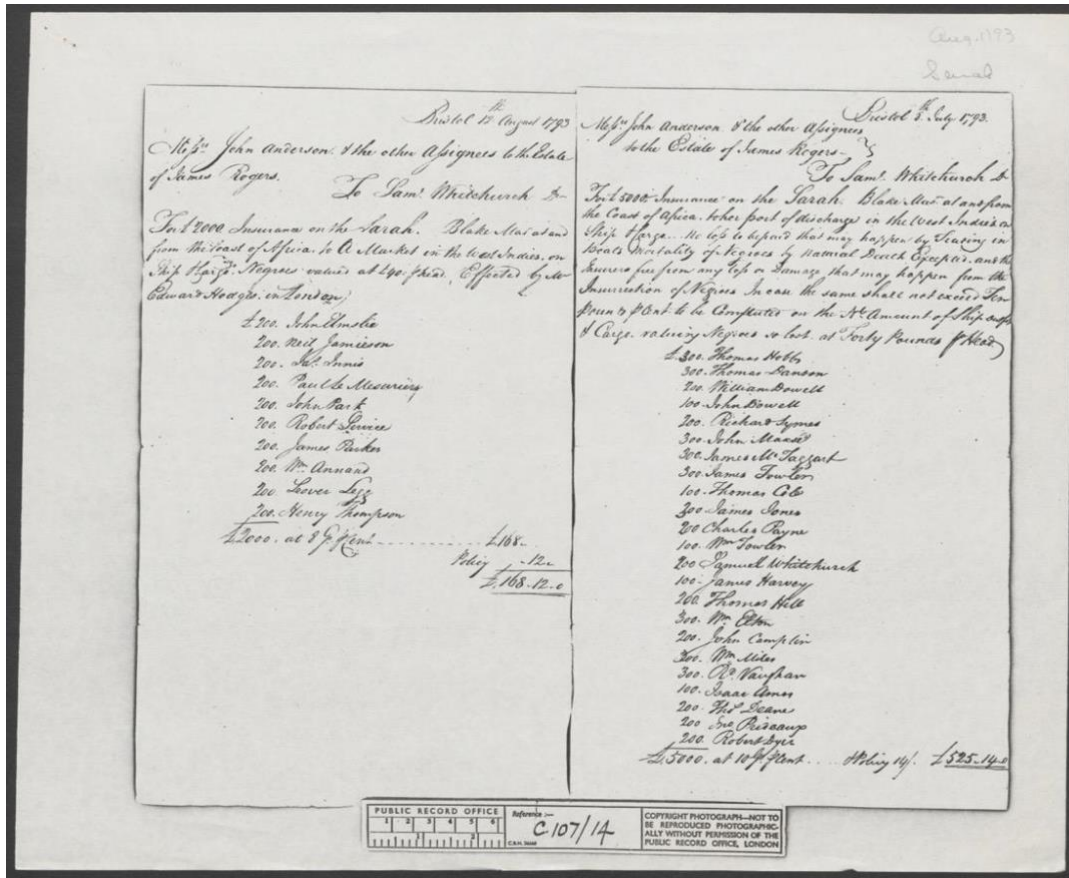 Aug. 1793
Bristol 12th August 1793
Messrs John Anderson & the other Assignees to the Estate
of James Rogers.
To Saml Whitchurch Dr
For £2000 Insurance on the Sarah. Blake Mas' at and
from the Coast of Africa, to a Market in the West Indies, on
Ship & Negroes valued at £40. p head. Effected by Mr
Edward Hodges, in London,
£200. John Elmslie
200. Neil Jamieson
200. Innis
200. Paul Le Mesurier
200. John Park
200. Robert Service
200. James Parker
200. Wm Annand
200. Leaver Legg
200. Henry Thompson
£2000. at 8 G. p Cent £168.
Policy .12.
£168.12.0
Bristol 8th July 1793.
Messrs John Anderson & the other Assignees
to the Estate of James Rogers
To Saml. Whitchurch Dr
For £5000 Insurance on the Sarah. Blake Mas' at and from
the Coast of Africa, to her port of discharge in the West Indies, on
Ship & Cargo. No loss to be paid that may happen by in
Boats Mortality of Negroes by natural Death Excepted, and the
Insurers free from any loss or Damage that may happen from the
Insurrection of Negroes In case the same shall not exceed Ten
Pounds p Cent to be Computed on the Nt Amount of Ship outfit
& Cargo, valuing Negroes so lost at Forty Pounds p Head
£300. Thomas Hobbs
300. Thomas Danson
200. William Dowell
100. John Dowell
200. Richard Symes
300. John Maxse
300. James McTaggart
300. James Fowler
100. Thomas Cole
300. James Jones
200 Charles Payne
100. Wm Fowler
200 Samuel Whitchurch
100. James Harvey
200. Thomas Hill
300. Wm Elton
200. John Camplin
300. Wm Miles
300. Rd. Vaughan
100. Isaac Amos
200. Thos Deane
200 Jno Prideaux
200. Robert Dyer
£5000. at 10 G. p Cent Policy 14/. £525.14.0
PUBLIC RECORD OFFICE
1 2 3 4 5 6
1 2
Reference:-
C107/14
COPYRIGHT PHOTOGRAPH—NOT TO
BE REPRODUCED PHOTOGRAPHIC-
ALLY WITHOUT PERMISSION OF THE
PUBLIC RECORD OFFICE, LONDON